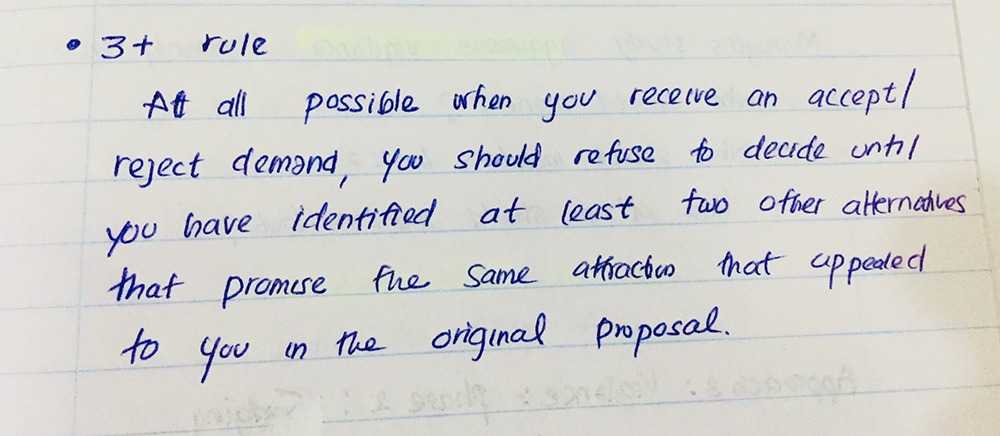 • 3+ rule
At all possible when you receive an accept/
reject demand, you should refuse to decide until
you have identified at least two other alternatives
that promise the same attraction that appealed
to you in the original proposal.
Approach 3: Vigilance: Phase 2: